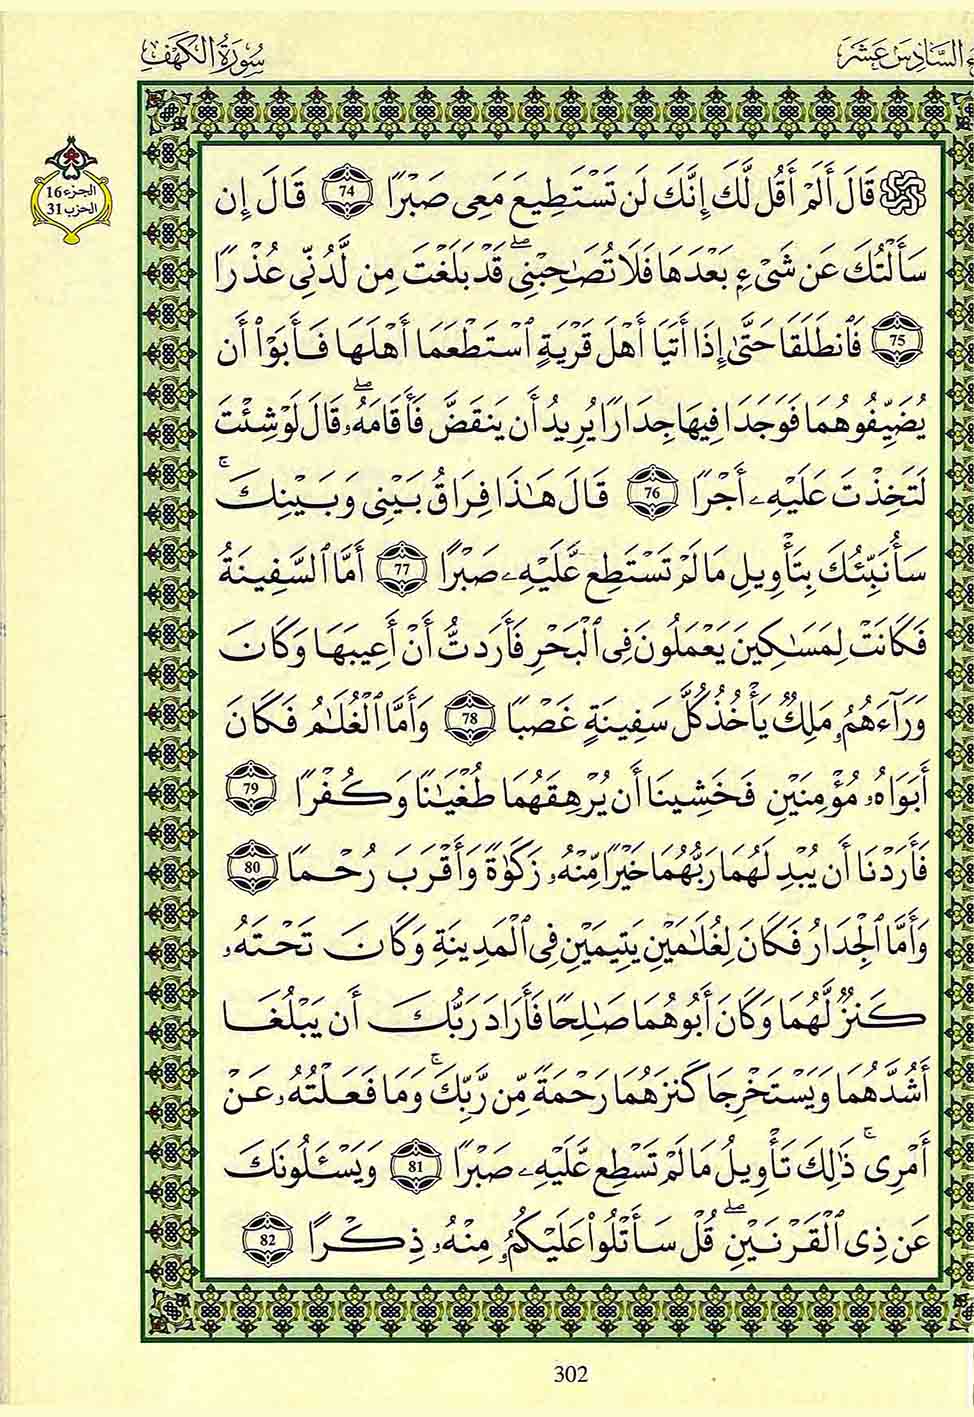 السَّادِسَ عَشَرَ
سُورَةُ الكَهْفِ
الجزء 16
الحزب 31
قَالَ أَلَمْ أَقُل لَّكَ إِنَّكَ لَن تَسْتَطِيعَ مَعِى صَبْرًا 74 قَالَ إِن
سَأَلْتُكَ عَن شَىْءٍۭ بَعْدَهَا فَلَا تُصَـٰحِبْنِى ۖ قَدْ بَلَغْتَ مِن لَّدُنِّى عُذْرًا
75 فَٱنطَلَقَا حَتَّىٰٓ إِذَا أَتَيَا أَهْلَ قَرْيَةٍ ٱسْتَطْعَمَا أَهْلَهَا فَأَبَوْا۟ أَن
يُضَيِّفُوهُمَا فَوَجَدَا فِيهَا جِدَارًا يُرِيدُ أَن يَنقَضَّ فَأَقَامَهُۥ ۖ قَالَ لَوْ شِئْتَ
لَتَخِذْتَ عَلَيْهِۦ أَجْرًا 76 قَالَ هَـٰذَا فِرَاقُ بَيْنِى وَبَيْنِكَ ۚ
سَأُنَبِّئُكَ بِتَأْوِيلِ مَا لَمْ تَسْتَطِع عَّلَيْهِۦ صَبْرًا 77 أَمَّا ٱلسَّفِينَةُ
فَكَانَتْ لِمَسَـٰكِينَ يَعْمَلُونَ فِى ٱلْبَحْرِ فَأَرَدتُّ أَنْ أَعِيبَهَا وَكَانَ
وَرَآءَهُمُۥ مَلِكٌ يَأْخُذُ كُلَّ سَفِينَةٍ غَصْبًا 78 وَأَمَّا ٱلْغُلَـٰمُ فَكَانَ
أَبَوَاهُۥ مُؤْمِنَيْنِ فَخَشِينَا أَن يُرْهِقَهُمَا طُغْيَـٰنًا وَكُفْرًا 79
فَأَرَدْنَا أَن يُبْدِلَهُمَا رَبُّهُمَا خَيْرًا مِّنْهُۥ زَكَوٰةً وَأَقْرَبَ رُحْمًا 80
وَأَمَّا ٱلْجِدَارُ فَكَانَ لِغُلَـٰمَيْنِ يَتِيمَيْنِ فِى ٱلْمَدِينَةِ وَكَانَ تَحْتَهُۥ
كَنزٌ لَّهُمَا وَكَانَ أَبُوهُمَا صَـٰلِحًا فَأَرَادَ رَبُّكَ أَن يَبْلُغَا
أَشُدَّهُمَا وَيَسْتَخْرِجَا كَنزَهُمَا رَحْمَةً مِّن رَّبِّكَ ۚ وَمَا فَعَلْتُهُۥ عَنْ
أَمْرِى ۚ ذَٰلِكَ تَأْوِيلُ مَا لَمْ تَسْطِع عَّلَيْهِۦ صَبْرًا 81 وَيَسْـَٔلُونَكَ
عَن ذِى ٱلْقَرْنَيْنِ ۖ قُلْ سَأَتْلُوا۟ عَلَيْكُمُۥ مِنْهُۥ ذِكْرًا 82
302